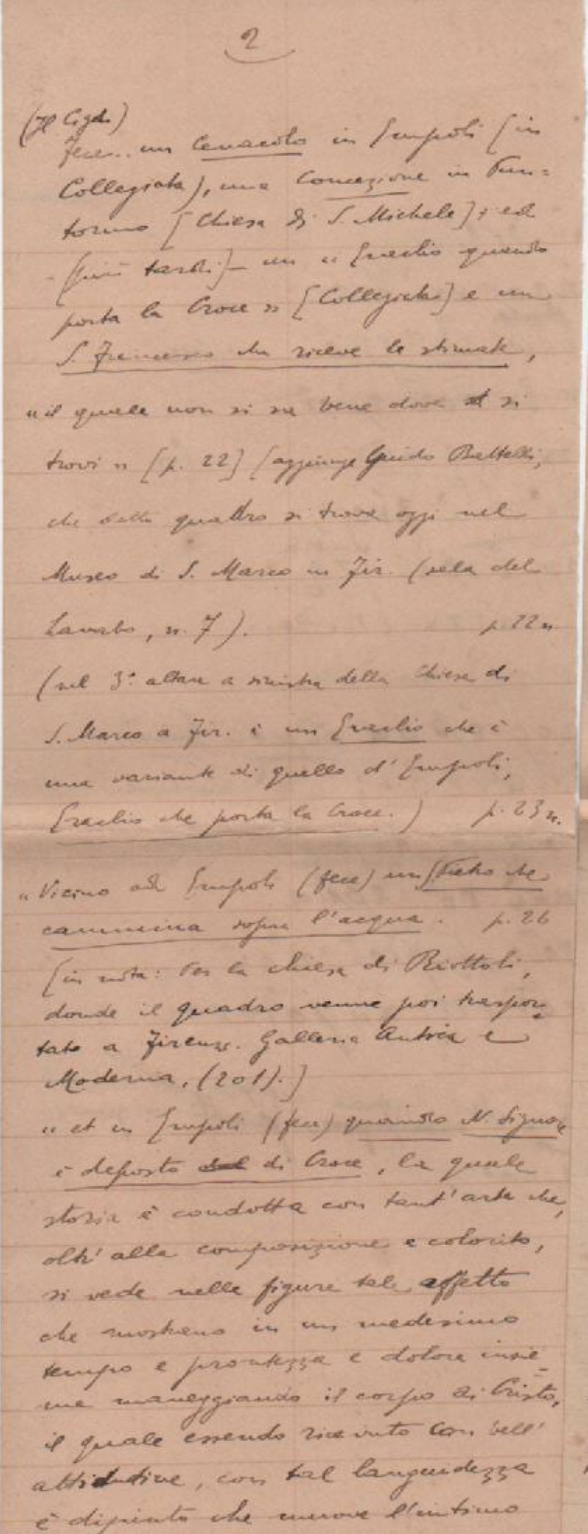 2
(Il Cigoli)
Fece.. un Cenacolo in Empoli [in
Collegiata), una Concezione in Pun=
tormo [Chiesa di S. Michele]; ed
- [più tardi] - un « Eraclio quando
porta la Croce » [Collegiata] e un
S. Francesco che riceve le stimate,
« il quale non si sa bene dove si
trovi » [p. 22] [aggiunge Guido Battelli,
che detto quadro si trova oggi nel
Museo di S. Marco in Fir. (sala del
Lavabo, n. 7). p. 22 n.
(nel 3° altare a sinistra della Chiesa di
S. Marco a Fir. è un Eraclio che è
una variante di quello d'Empoli,
Eraclio che porta la Croce.) p. 23 n.
« Vicino ad Empoli (fece) un S. Pietro che
cammina sopra l'acqua. p. 26
[in nota: Per la chiesa di
donde il quadro venne poi traspor=
tato a Firenze. Galleria Antica e
Moderna, (201).]
« et in Empoli (fece) quando N. Signore
è deposto di Croce, la quale
storia è condotta con tant'arte che,
oltr'alla composizione e colorito,
si vede nelle figure tale affetto
che mostrano in un medesimo
tempo e prontezza e dolore insie=
me maneggiando il corpo di Cristo,
il quale essendo ricevuto con bell'
attitudine, con tal languidezza
è dipinto che muove l'intimo